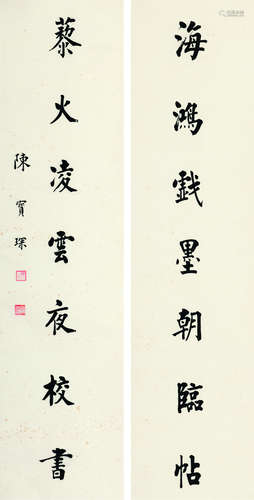 海鴻戲墨朝臨帖
藜火凌雲夜校書
陳寶琛